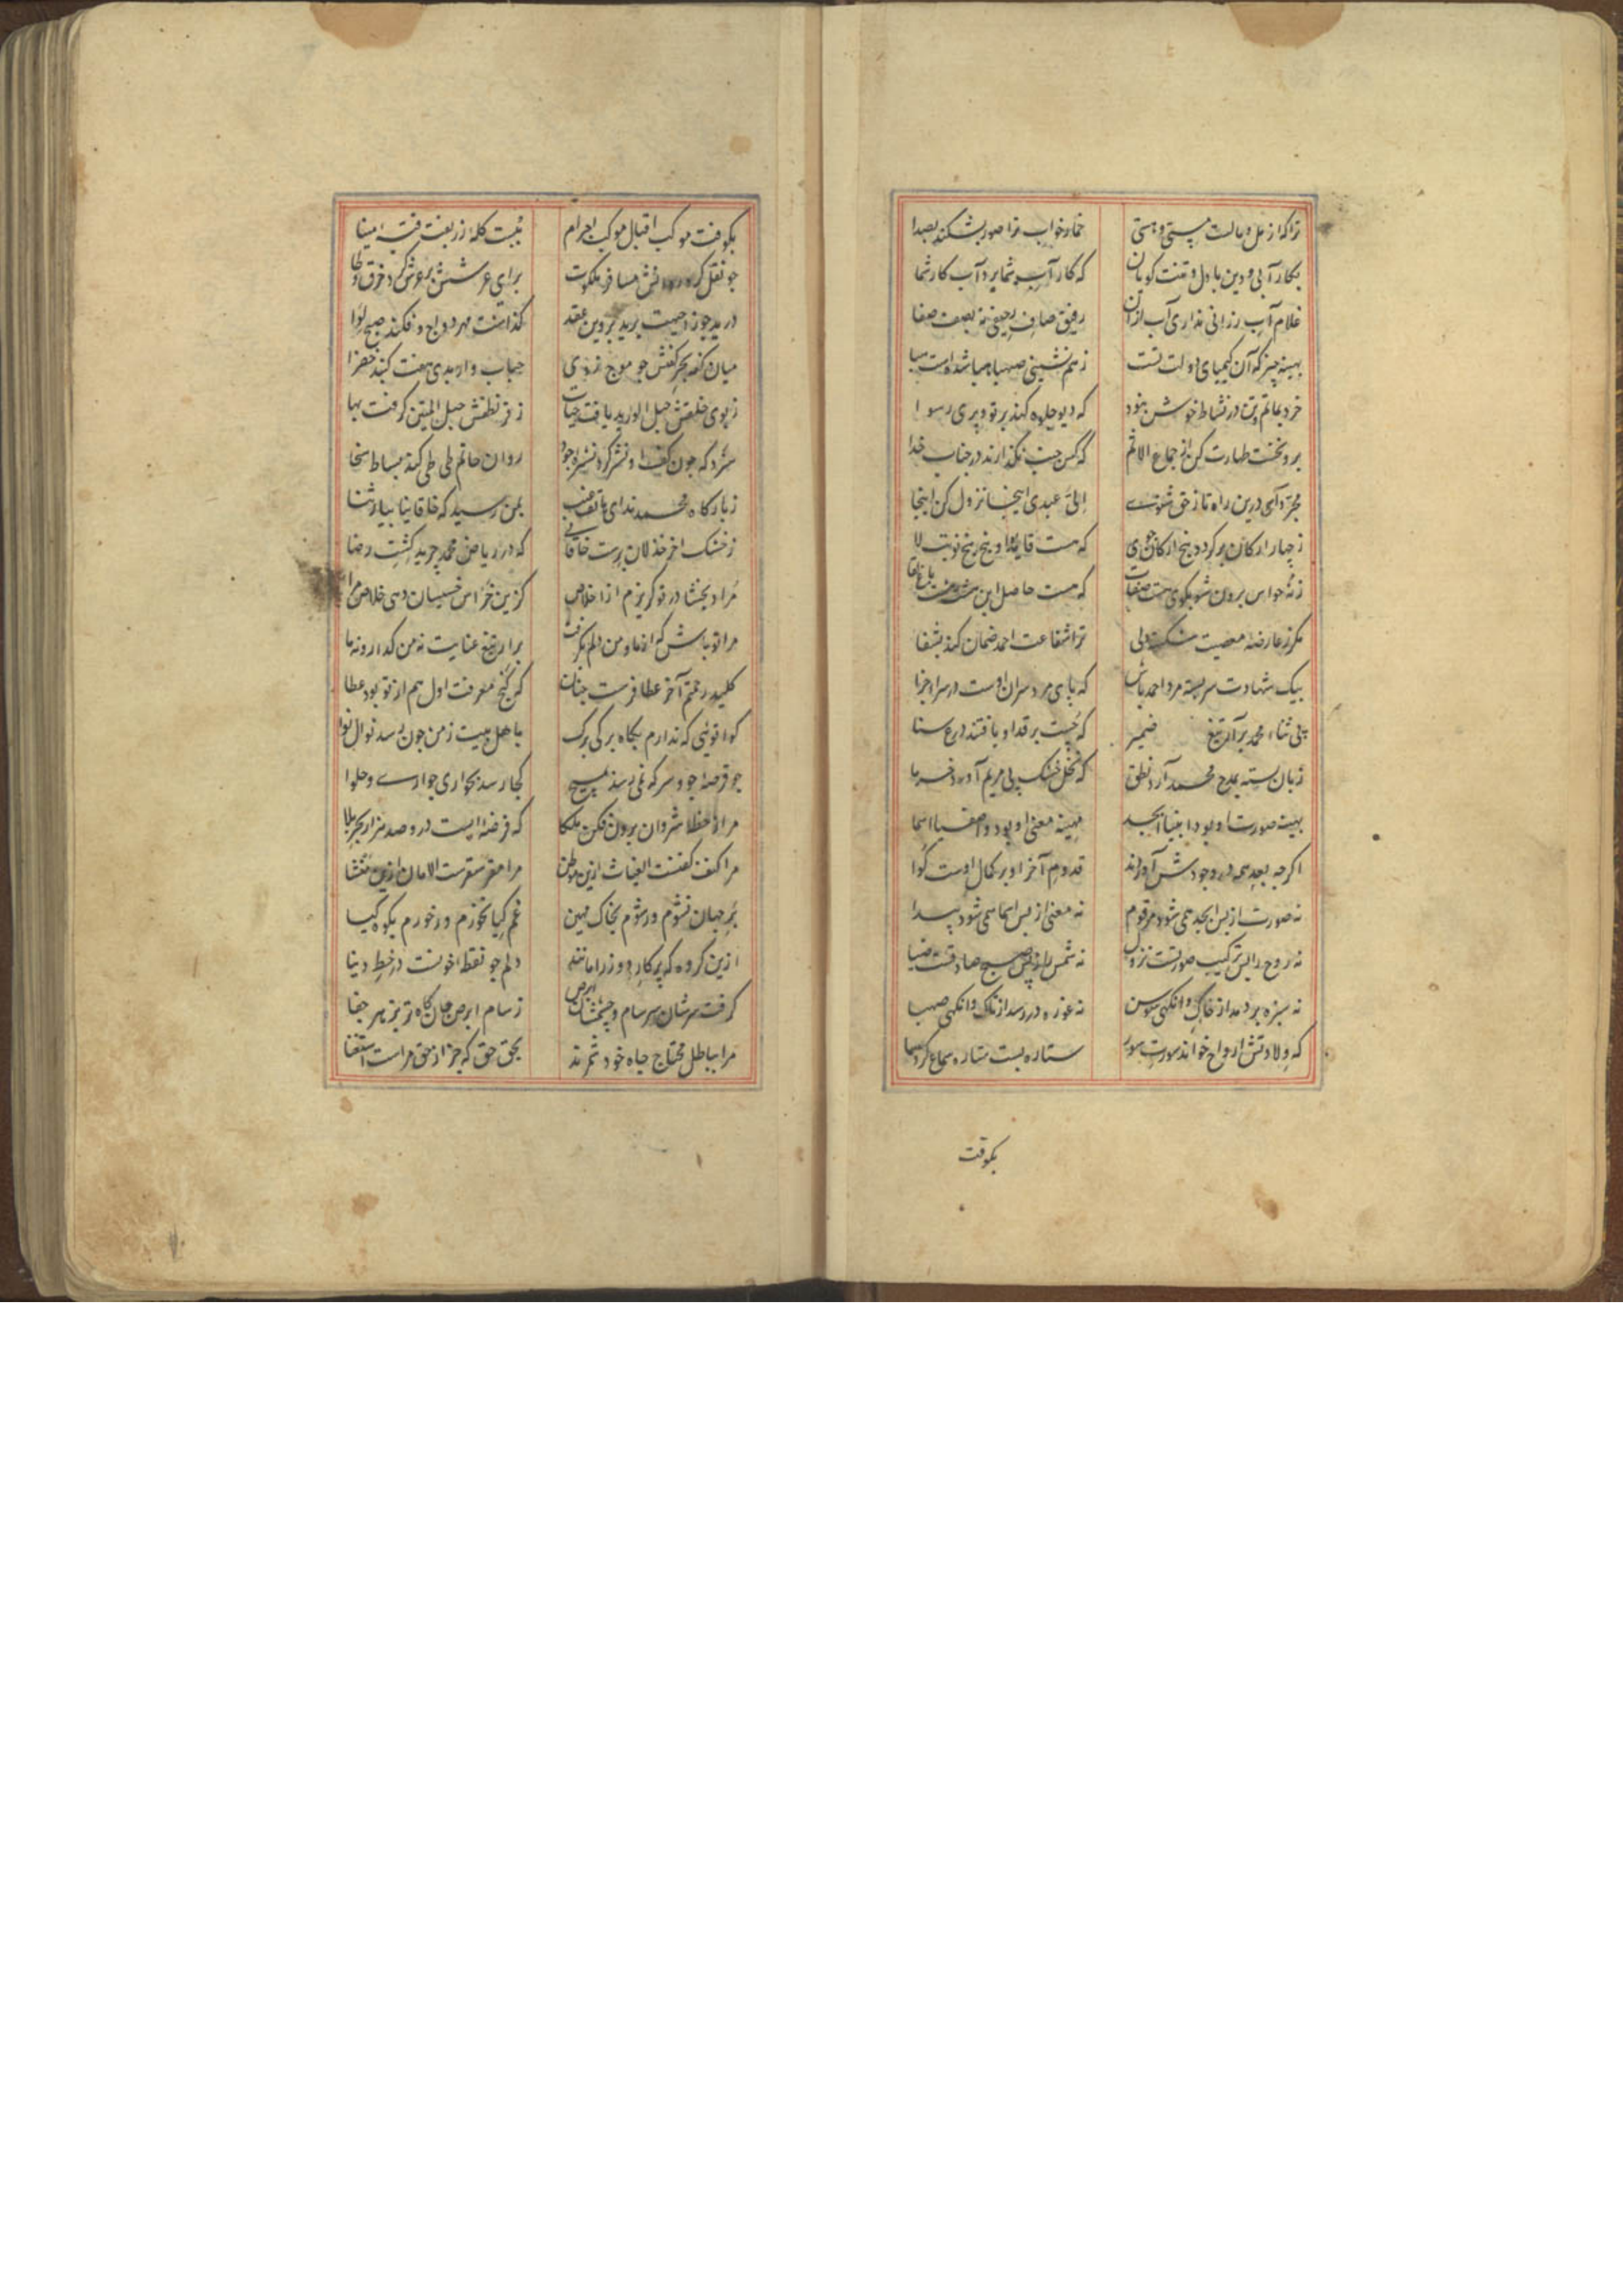 تراکه از مل و مالست مستی و هستی خمار خواب ترا صور بشکند بصدا
بکار آبی و دین با دل و تنت کویان که کار آب شما برد آب کار شما
غلام آب رزانی نداری آب ازان رفیق صاف رحیقی نه بصف صفا
بهینه چیز که آن کیمیای دولت تست ز هم نشینی صهبا هبا شدست هبا
خرد بماتم و تن در نشاط خوش نبود که دیو جلوه کند بر تو و پری رسوا
برو نخست طهارت کن از جماع الاثم که کس جنب نکذارند در جناب خدا
مجرد آی درین راه تا ز حق شنوی الی عبدی اینجا نزول کن اینجا
ز چهار ارکان بر کرد و پنج ارکان جوی که هست قاید او پنج پنج نوبت لا
ز نه حواس برون شو بکوی هشت صفات که هست حاصل این هشت هشت باغ لقا
مکر ز عارضه معصیت شکسته دلی ترا شفاعت احمد ضمان کند بشفا
بیک شهادت سر بسته مرد احمد باش که پای مرد سران اوست در سرای جزا
پی ثناء محمد برآر تیغ ضمیر که چست بر قد او بافتند درع سنا
زبان بسته بمدح محمد آرد نطق که نخل خشک پی مریم آورد خرما
بهینه صورت او بود و انبیا ابجد مهینه معنی او بود و اصفیا اسما
اکرچه بعد همه در وجودش آوردند قدوم آخر او بر کمال اوست کوا
نه صورت از پس ابجد همی شود مرقوم نه معنی از پس اسما همی شود پیدا
نه روح را پس ترکیب صورتست نزول نه شمس را ز پس صبح صادقست ضیا
نه سبزه بر دمد از خاک وانکهی سوسن نه غوره در رسد از تاک وانکهی صهبا
که ولادتش ارواح خوانده سورت سور ستاره بست ستاره سماع کرد سما
بکوفت
بکوفت موکب اقبال موکب اجرام ببست کله زربفت قبه مینا
چو نقل کرد روانش مسافر ملکوت برای عرسش بر عرش کرد خرق وطا
درید جوزا جیبت برید پروین عقد کذاشت مهر دواج و فکند صبح لوا
میان کفه بحر کفش چو موج زدی حباب وار بدی هفت کنبد خضرا
ز بوی خلقش حبل الورید یافت حیات ز فر نطقش حبل المتین کرفت بها
سزد که چون کف او نشر کرد نشره جود روان حاتم طی طی کند بساط سخا
ز بارکاه محمد ندای هاتف غیب بمن رسید که خاقانیا بیار ثنا
ز خشک آخر خذلان برست خاقانی که در ریاض محمد چرید کشت رضا
مراد بخشا در تو کریزم از اخلاص کزین خراس خسیسان دهی خلاص مرا
مرا تو باش که از ما و من دلم بکرفت برار تیغ عنایت نه من کذار و نه ما
کلید رحمتم آخر عطا فرست چنان کز کنج معرفت اول هم از تو بود عطا
کوا توئی که ندارم بکاه برکی برک باهل بیت ز من چون رسد نوال نوا
چو قرصه جو و سرکه نمی رسد بمسیح کجا رسد بحواری حواری و حلوا
مرا ز خطه شروان برون فکن ملکا که فرضه ایست درو صد هزار بحر بلا
مرا کنف کفنست الغیاث ازین موطن مرا مقر سقرست الامان ازین منشا
بر جهان نشوم ور شوم بخاک مهین غم کیا نخورم ور خورم بکوه کیا
ازین کروه که پرکار دوزرا مانند دلم چو نقطه خونست در خط دنیا
کرفت سرشان سرسام و چشمشان ابرص ز سام ابرص جان کاه تر بزهر جفا
مرا بباطل محتاج جاه خود شمرند بحق حق که جز از حق مراست استغنا